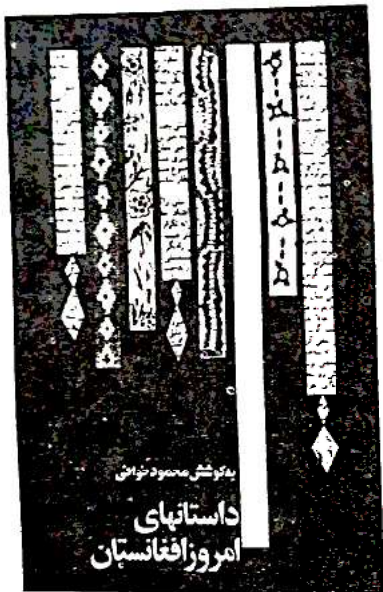 به‌کوشش محمود خوافی
داستانهای
امروز افغانستان